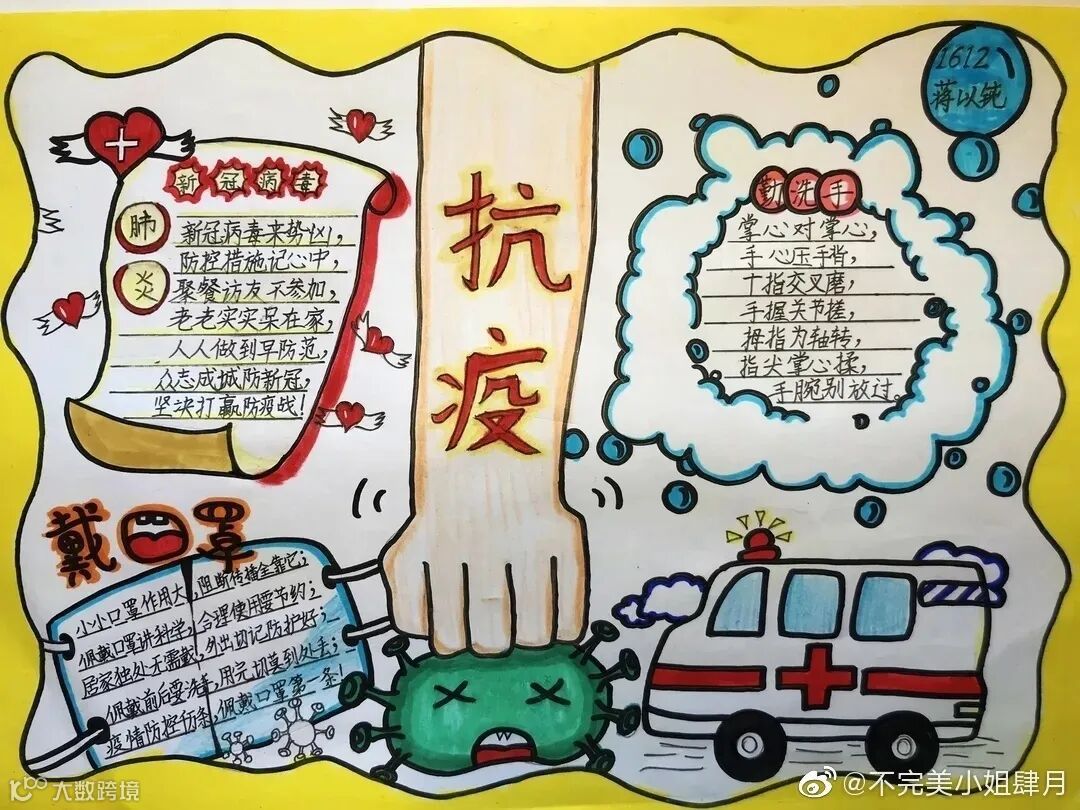 1612
蒋以钝
新冠病毒
肺炎
新冠病毒来势凶,
防控措施记心中,
聚餐访友不参加,
老老实实呆在家,
人人做到早防范,
众志成城防新冠,
坚决打赢防疫战!
抗疫
勤洗手
掌心对掌心,
手心压手背,
十指交叉磨,
手握关节搓,
拇指为轴转,
指尖掌心揉,
手腕别放过。
戴口罩
小小口罩作用大,阻断传播全靠它;
佩戴口罩讲科学,合理使用要节约;
居家独处无需戴,外出切记防护好;
佩戴前后要洗手,用完切莫到处丢;
疫情防控 条,佩戴口罩第一条!
大数跨境
@不完美小姐肆月